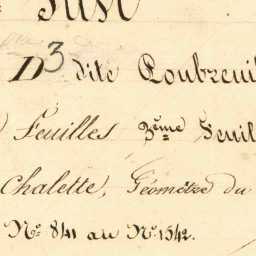 D3 dite Poubreuil
Feuilles 3ème Feuil
Chalette, Géomètre du
Nº 841 au Nº 1542.